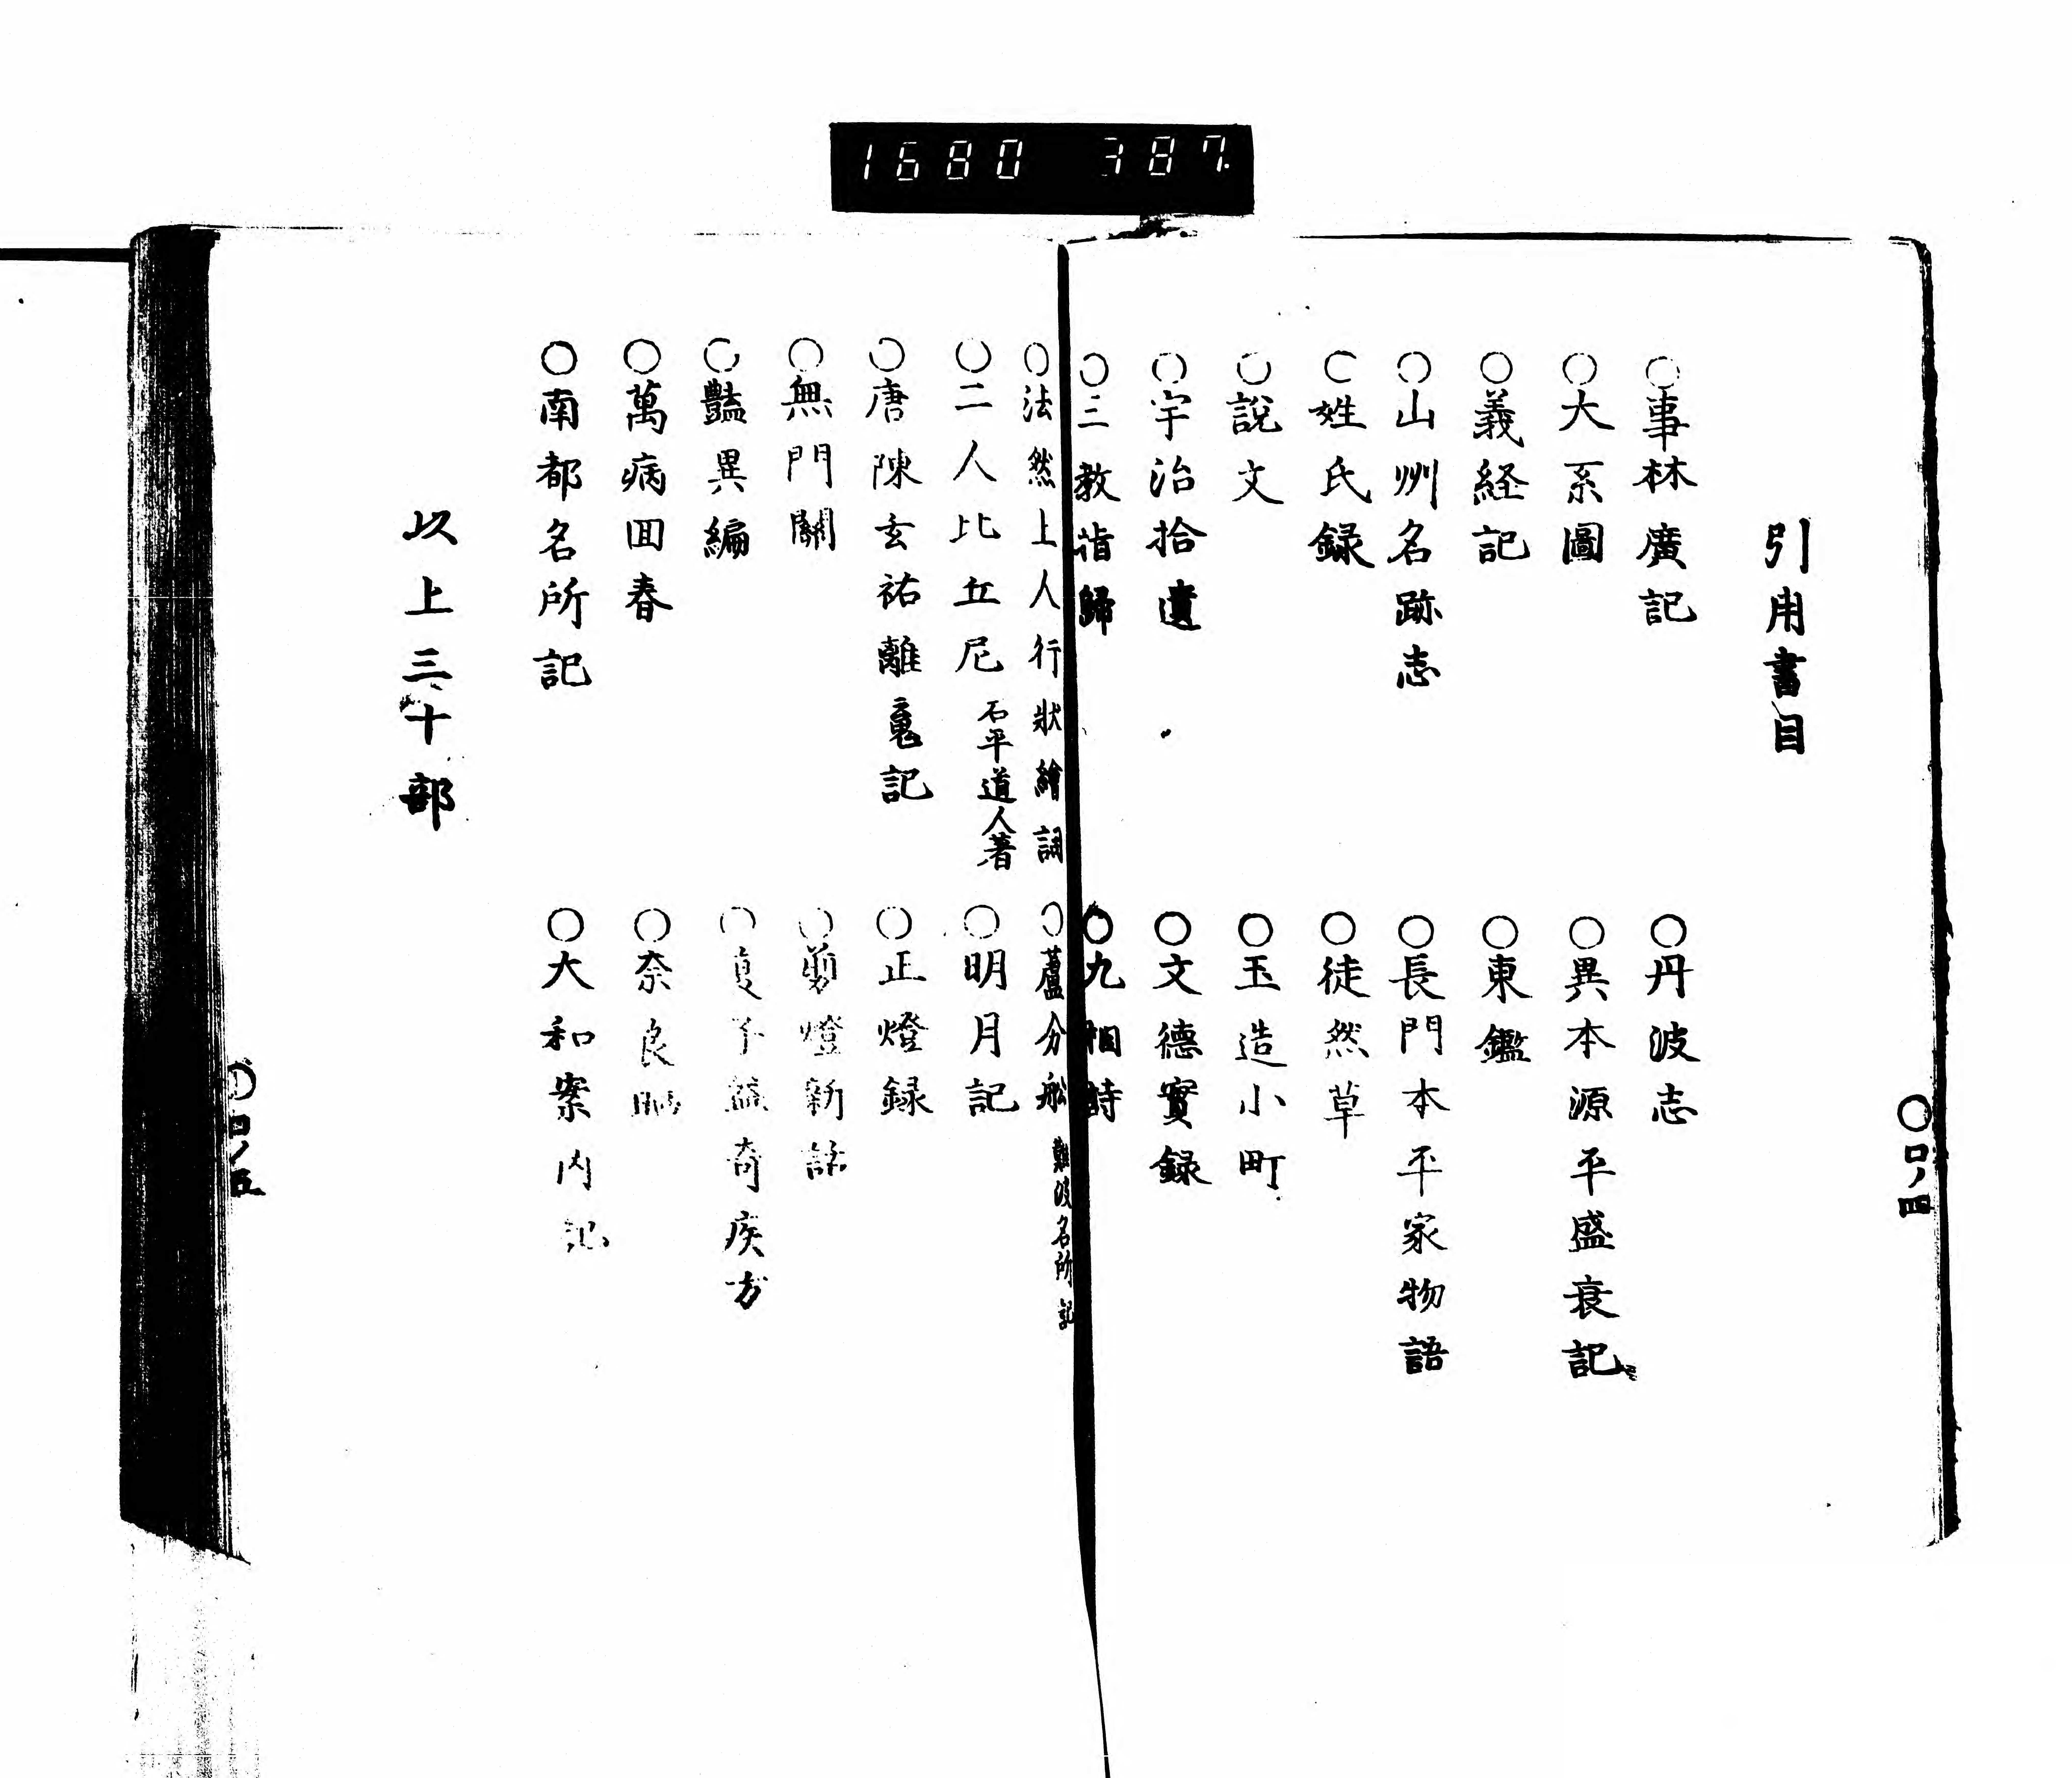 1680 387
引用書目
○事林廣記
○丹波志
○大系圖
○異本源平盛衰記
○義経記
○東鑑
○山州名跡志
○長門本平家物語
○姓氏録
○徒然草
○說文
○玉造小町
○宇治拾遺
○文德實録
○三教指歸
○九相詩
○口ノ四
○法然上人行狀繪詞
○蘆分舩 難波名所記
○二人比丘尼 石平道人著
○明月記
○唐陳玄祐離魂記
○正燈録
○無門關
○剪燈新話
○豔異編
○夏子益奇疾方
○萬病囬春
○奈良
○南都名所記
○大和案内記
以上三十部
○口ノ五